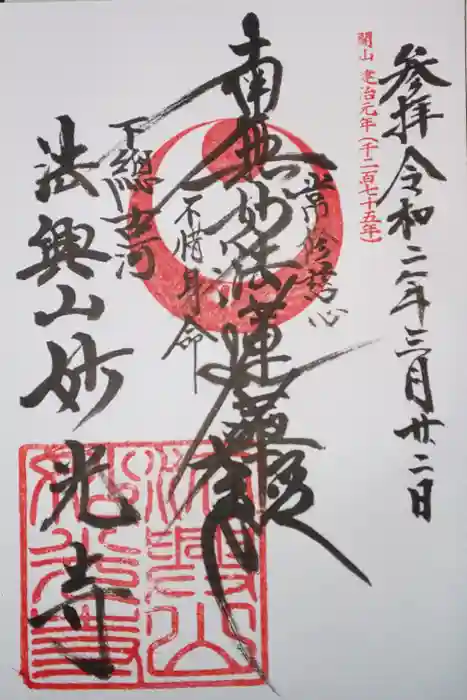 開山 建治元年(千二百七十五年)
参拝令和二年三月廿二日
常修慈心
南無妙法蓮華経
不惜身命
下總古河
法興山妙光寺